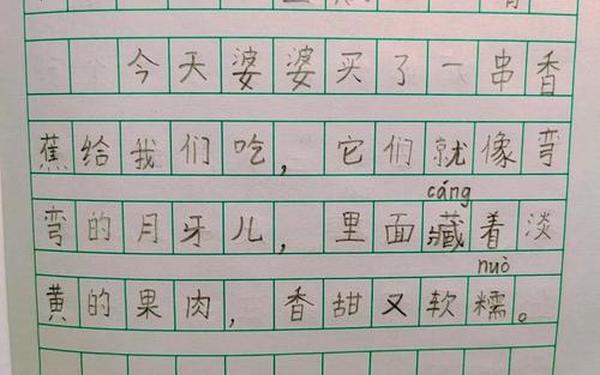 今天婆婆买了一串香
蕉给我们吃，它们就像弯
cáng
弯的月牙儿，里面藏着淡
nuò
黄的果肉，香甜又软糯。